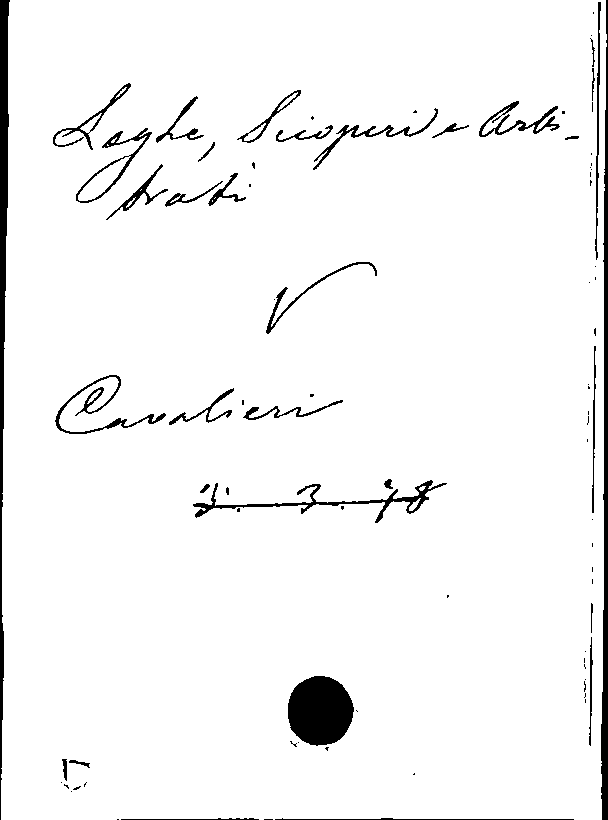 Leghe, Scioperi e Arbi-
trati
V
Cavalieri
3. 78